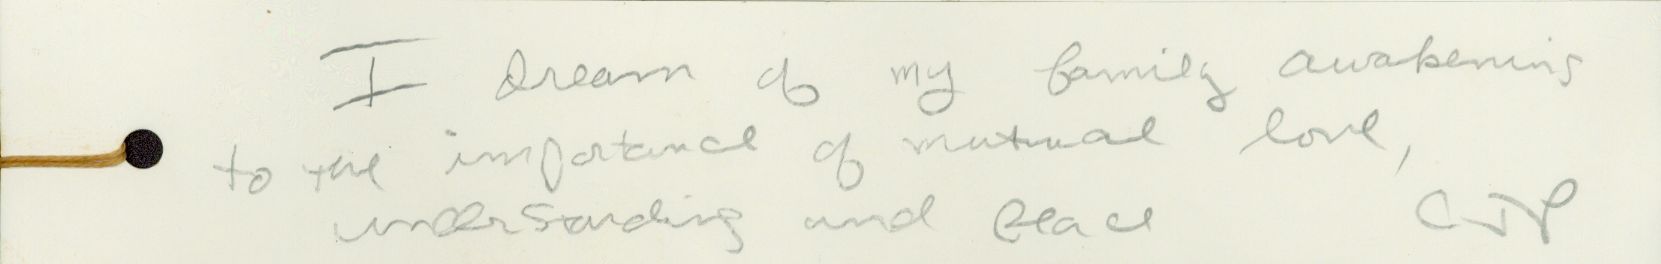 I dream of my family awakening
to the importance of mutual love,
understanding and peace CJP